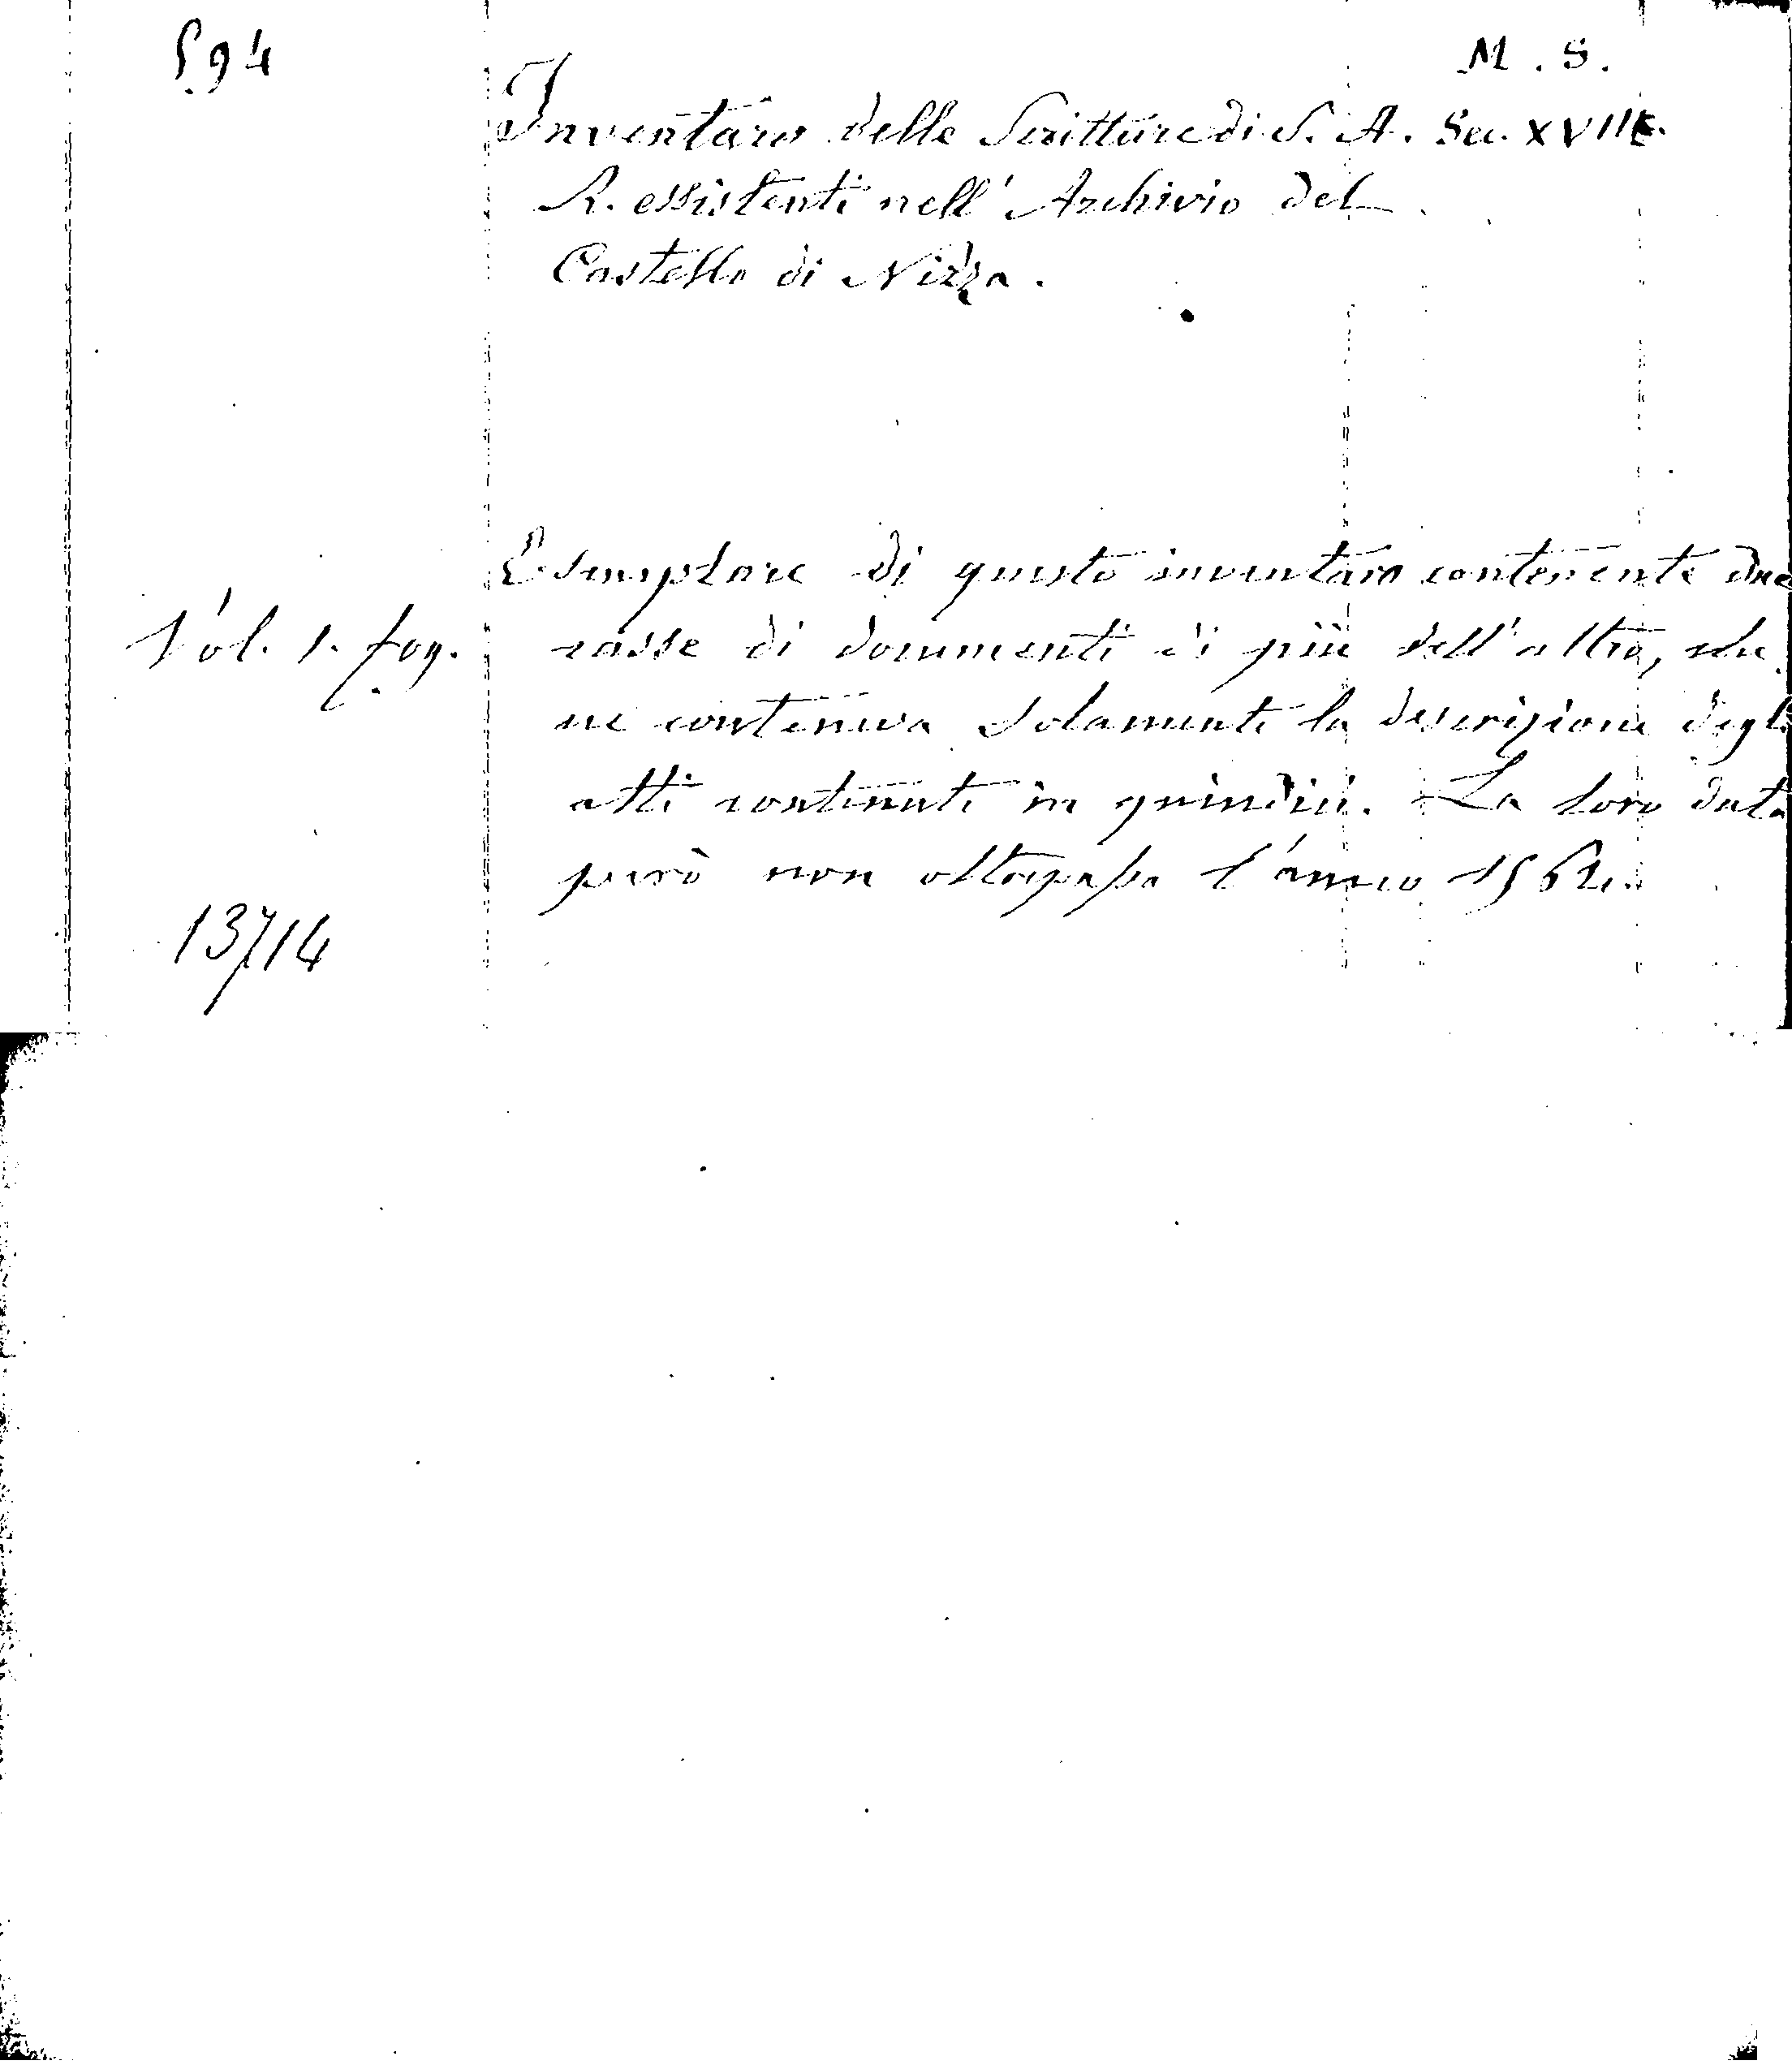 594
M. S.
Inventaro delle Scritture di S. A. Sec. XVIII.
R. essistenti nell' Archivio del
Castello di Nizza.
Esemplare di questo inventaro contenente due
Vol. 1. fog. casse di documenti di più dell'altro, che
ne conteneva solamente la descrizione degli
atti contenuti in quindici. La loro data
però non oltrepassa l'anno 1562.
13714